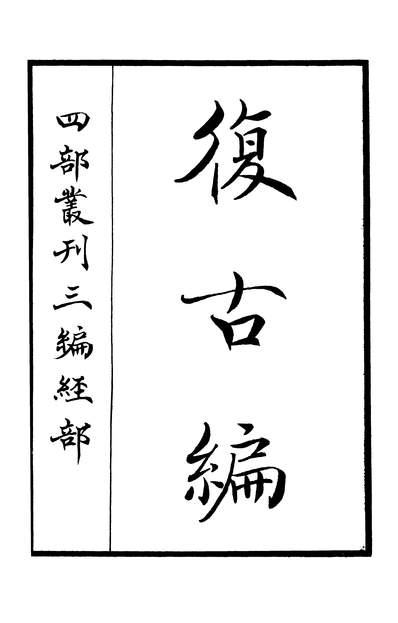 復古編
四部叢刊三編經部